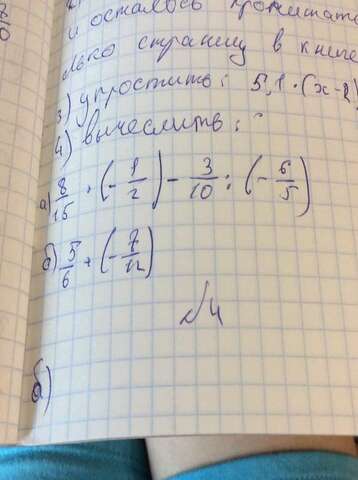 и осталось прочитать
лько страниц в книге
3) упростить: 5,1 · (x -
4) вычеслить:
а) 8/15 · (- 1/2) - 3/10 : (- 6/5)
б) 5/6 + (- 7/12)
№4
б)